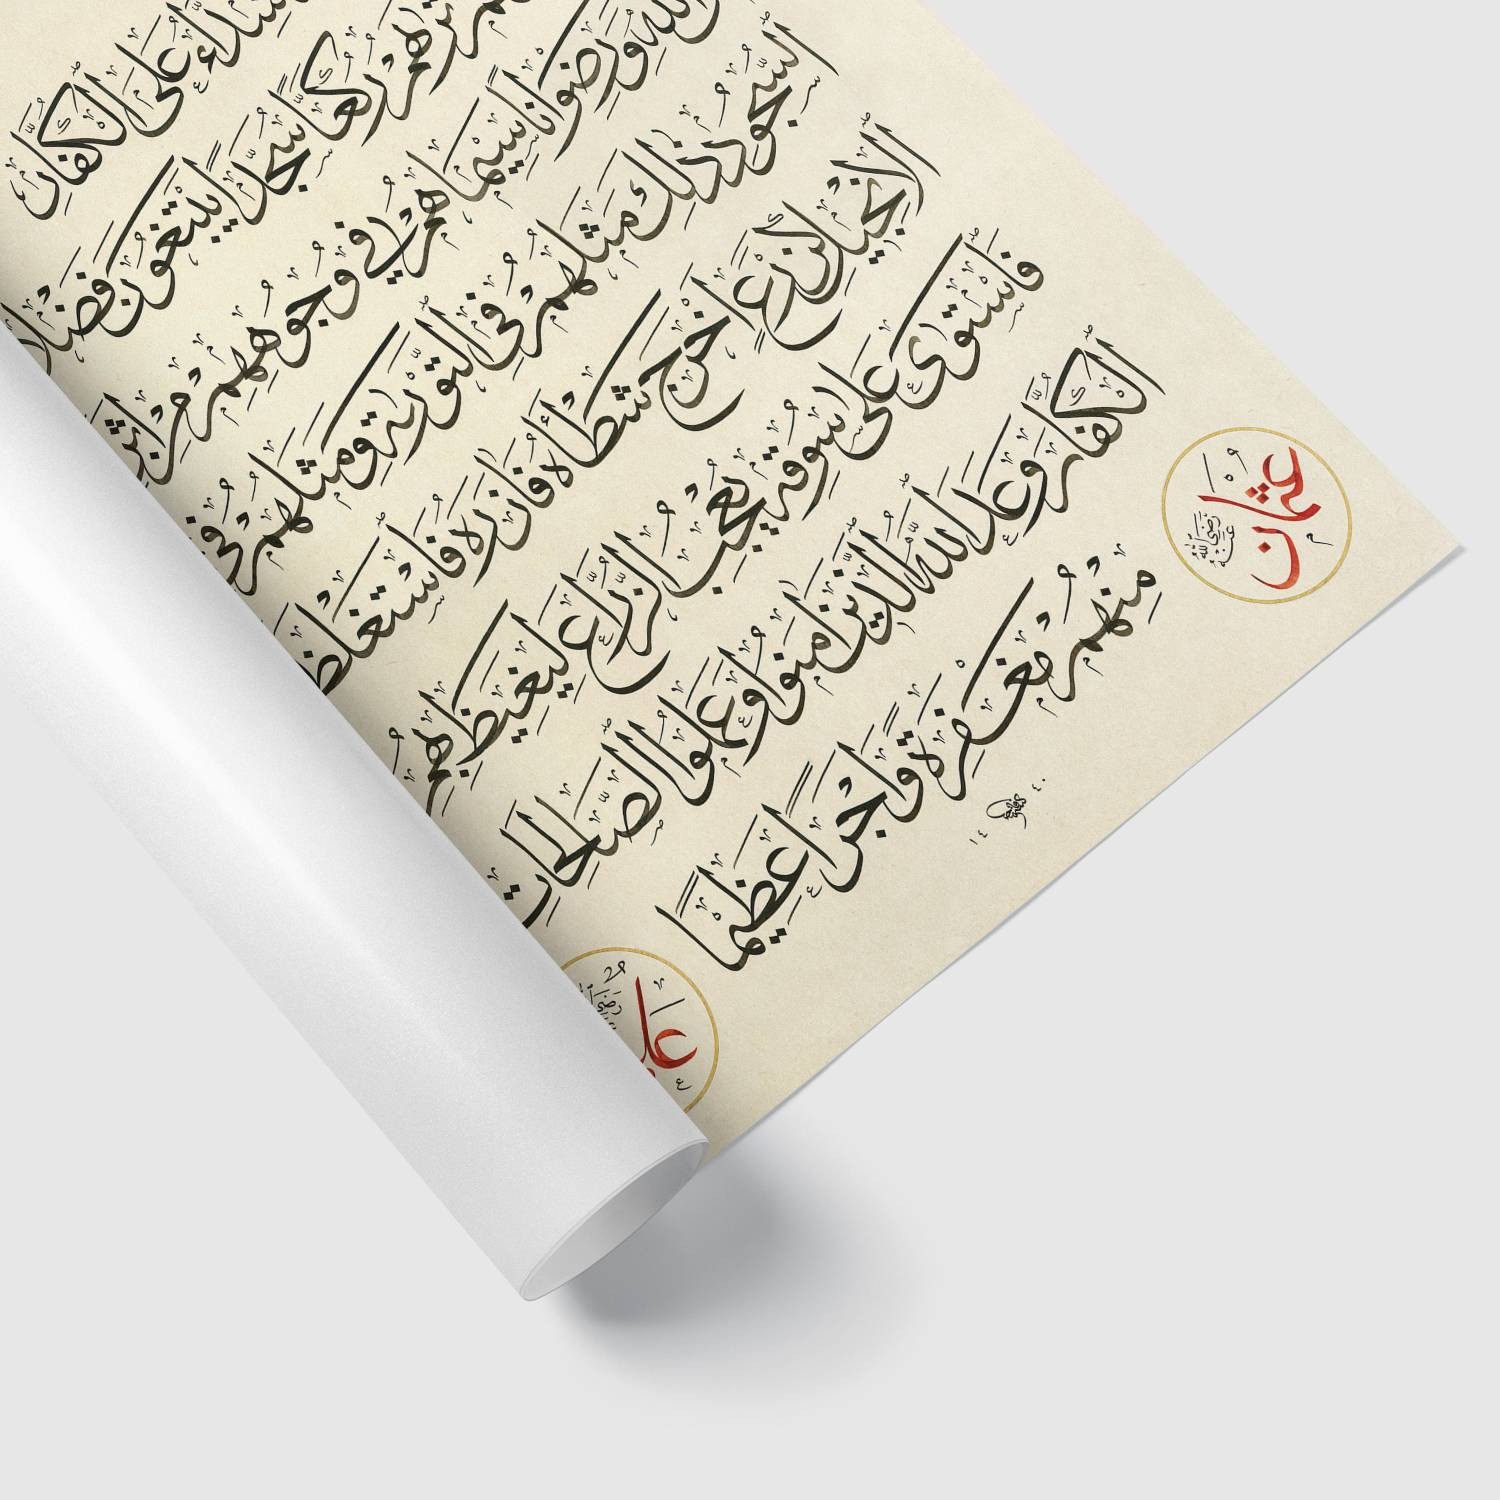 عَلَى ٱلْكُفَّارِ
تَرَىٰهُمْ رُكَّعًا سُجَّدًا يَبْتَغُونَ فَضْلًا
ٱللَّهِ وَرِضْوَانًا سِيمَاهُمْ فِي وُجُوهِهِمْ مِنْ أَثَرِ
ٱلسُّجُودِ ذَٰلِكَ مَثَلُهُمْ فِي ٱلتَّوْرَيٰةِ وَمَثَلُهُمْ فِي
ٱلْإِنْجِيلِ كَزَرْعٍ أَخْرَجَ شَطْأَهُ فَآزَرَهُ فَاسْتَغْلَظَ
فَٱسْتَوَىٰ عَلَىٰ سُوقِهِ يُعْجِبُ ٱلزُّرَّاعَ لِيَغِيظَ بِهِمُ
ٱلْكُفَّارَ وَعَدَ ٱللَّهُ ٱلَّذِينَ آمَنُوا وَعَمِلُوا ٱلصَّالِحَاتِ
مِنْهُمْ مَغْفِرَةً وَأَجْرًا عَظِيمًا
عُثْمَان
رَضِيَ ٱللَّهُ عَنْهُ
١٤
٤٠